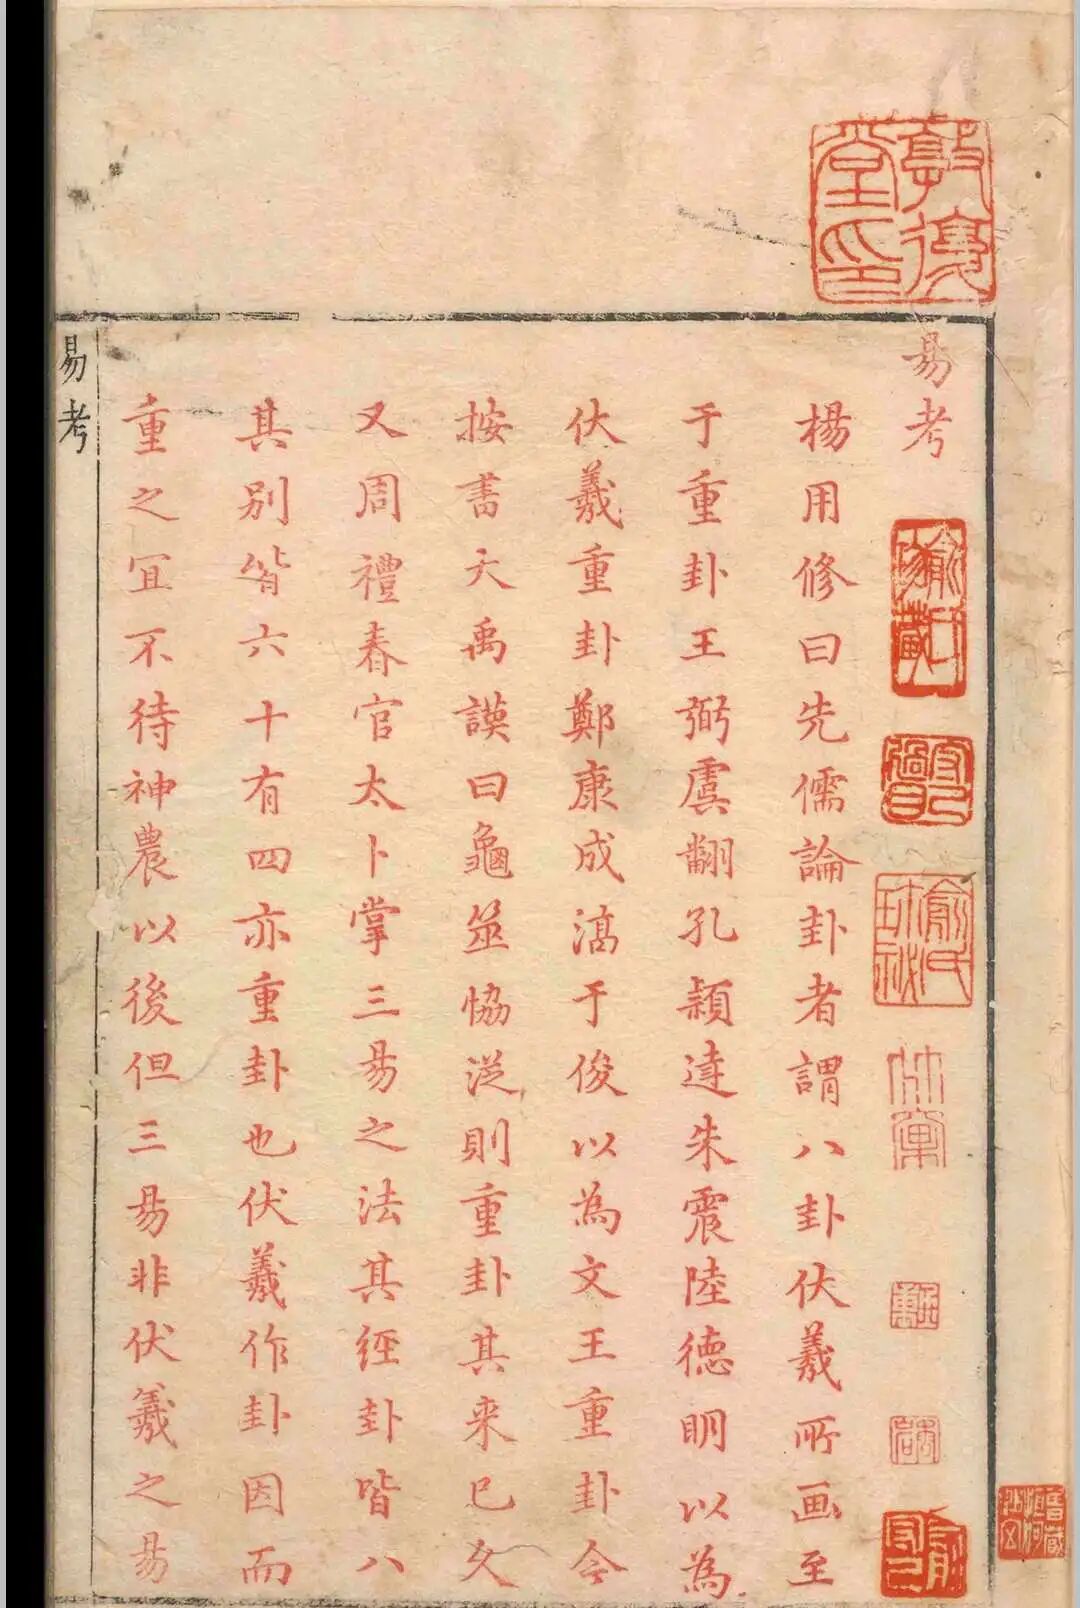 敦復堂印
易考
楊用修曰先儒論卦者謂八卦伏羲所画至
于重卦王弼虞翻孔穎達朱震陸德明以為
伏羲重卦鄭康成淳于俊以為文王重卦今
按書大禹謨曰龜筮恊從則重卦其来已久
又周禮春官太卜掌三易之法其經卦皆八
其別皆六十有四亦重卦也伏羲作卦因而
重之冝不待神農以後但三易非伏羲之易
易考